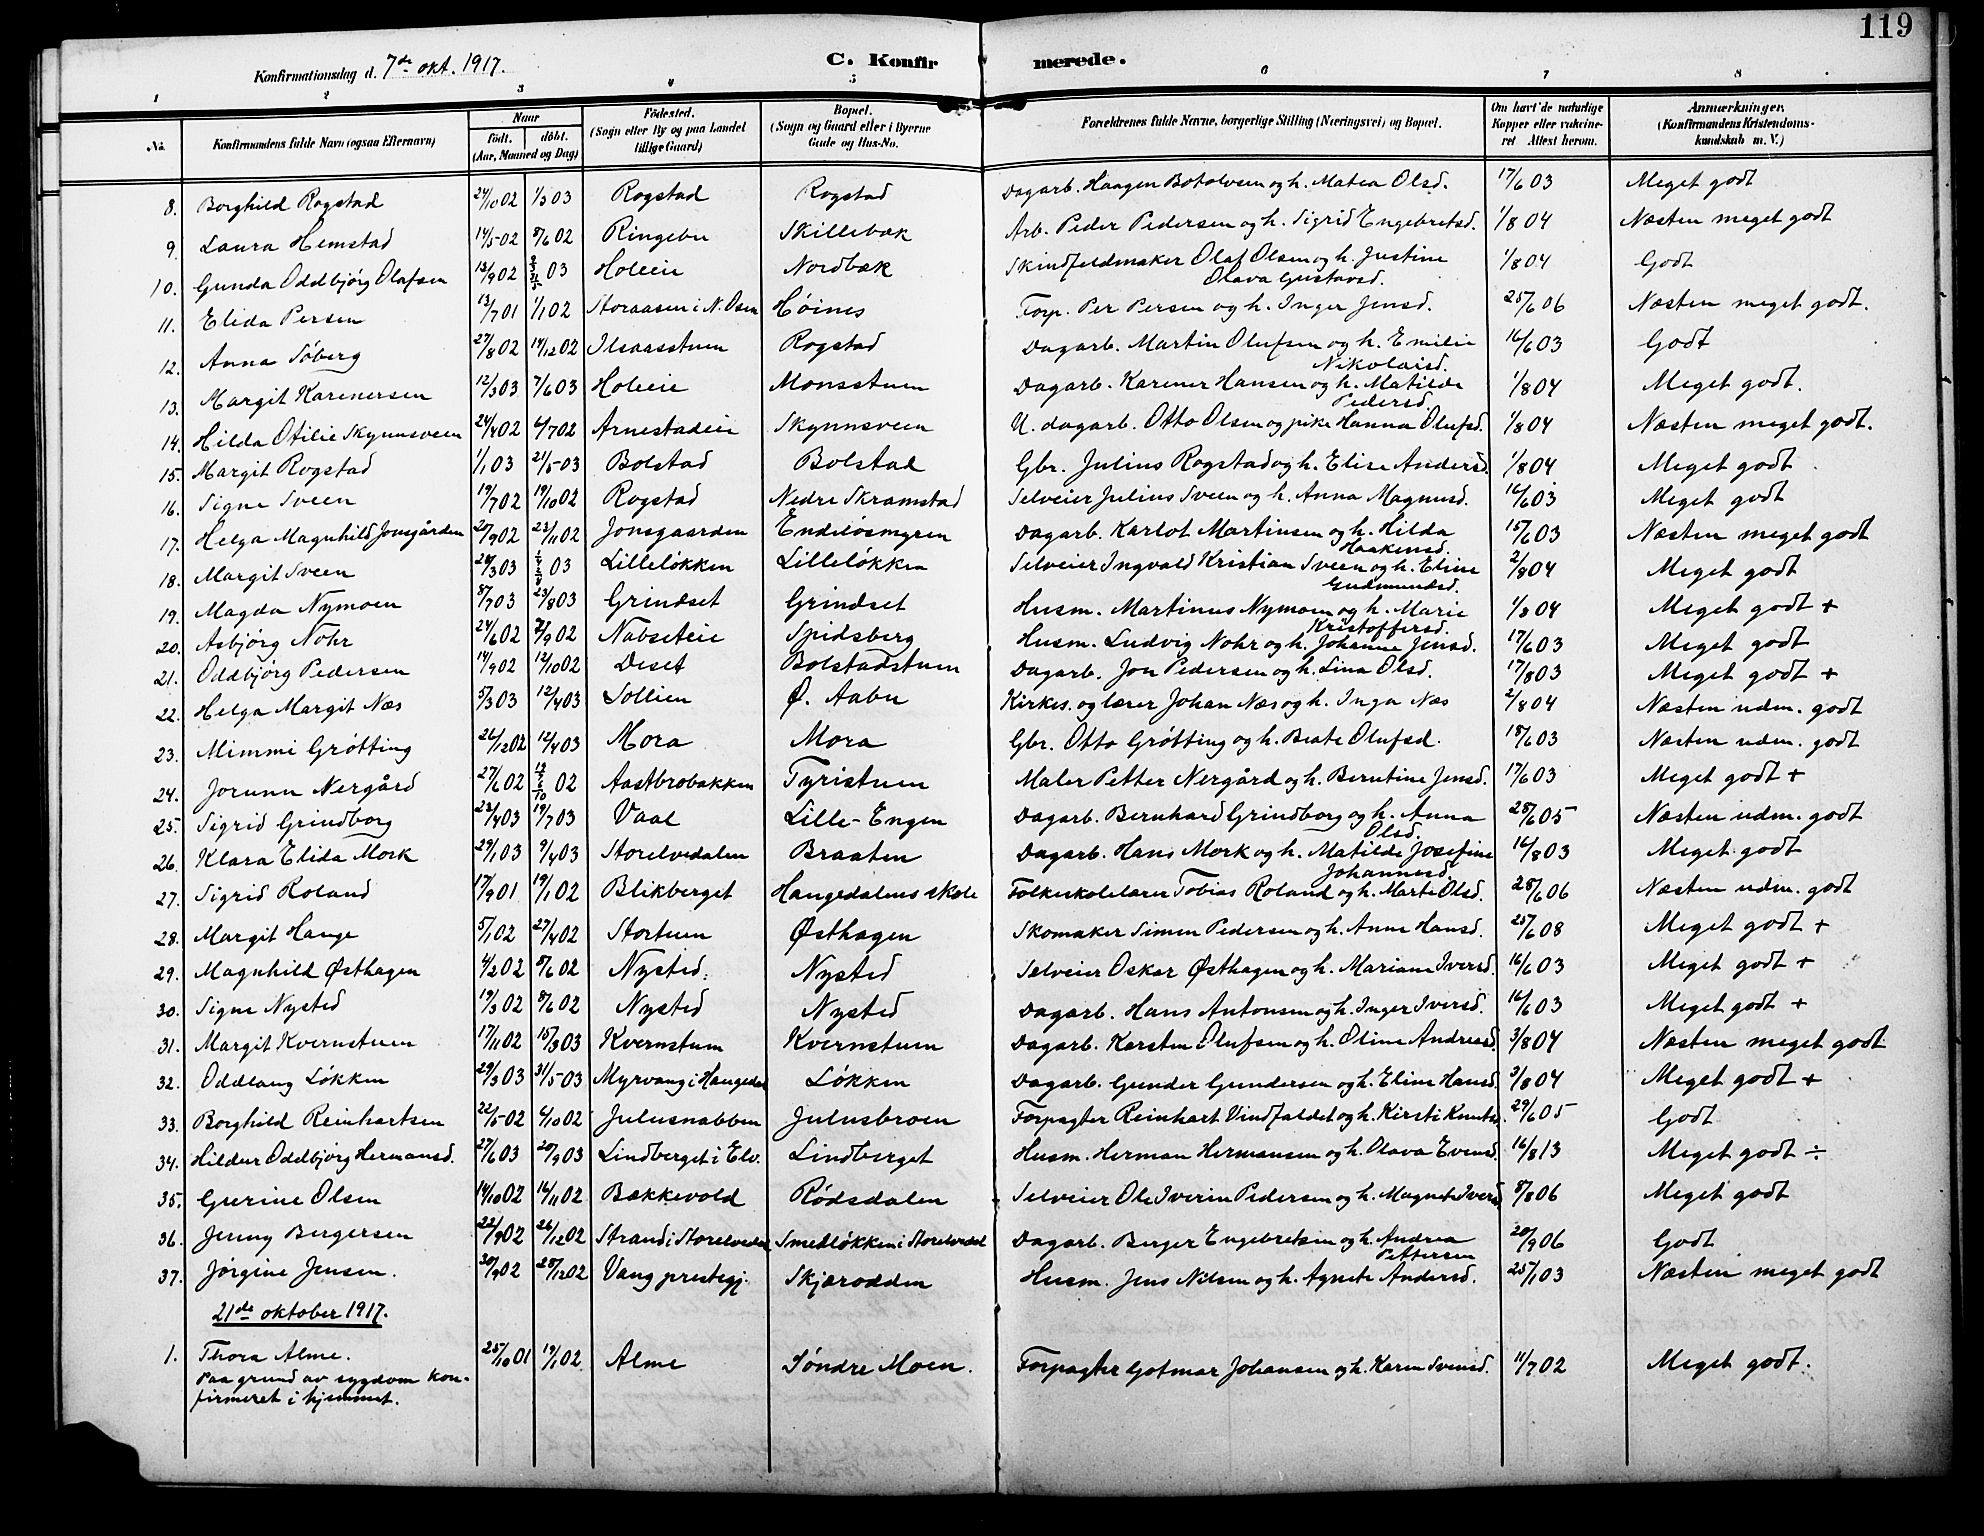 119
Konfirmationsdag d. 7de okt. 1917.
C. Konfirmerede.
1 2 3 4 5 6 7 8
No. | Konfirmandens fulde Navn (ogsaa Efternavn) | Naar födt. döbt. (Aar, Maaned og Dag) | Födested. (Sogn eller By og paa Landet tillige Gaard) | Bopæl. (Sogn og Gaard eller i Byerne Gade og Hus-No. | Forældrenes fulde Navne, borgerlige Stilling (Næringsvei) og Bopæl. | Om havt de naturlige Kopper eller vakcineret Attest herom. | Anmærkninger. (Konfirmandens Kristendomskundskab m. V.)
8. Borghild Rogstad 24/10 02 1/3 03 Rogstad Rogstad Dagarb. Haagen Botolvsen og h. Matea Olsd. 17/6 03 Meget godt
9. Laura Hemstad 14/5 02 8/6 02 Ringebu Skillebæk Arb. Peder Pedersen og h. Sigrid Engebretsd. 1/8 04 Næsten meget godt
10. Gunda Oddbjørg Olafsen 13/9 02 03 Holeie Nordbæk Skindfeldmaker Olaf Olsen og h. Justine Olava Gustavsd. 1/8 04 Godt
11. Elida Persen 13/7 01 1/1 02 Storaasen i N. Osen Höines Forp. Per Persen og h. Inger Jensd. 25/6 06 Næsten meget godt.
12. Anna Söberg 27/8 02 14/12 02 Ilsaasstuen Rogstad Dagarb. Martin Olufsen og h. Emilie Nikolaisd. 16/6 03 Godt
13. Margit Karenersen 12/3 03 7/6 03 Holeie Monsstuen Dagarb. Karener Hansen og h. Matilde Pedersd. 1/8 04 Meget godt.
14. Hilda Otilie Skynnsveen 24/4 02 6/7 02 Arnestadeie Skynnsveen U. dagarb. Otto Olsen og pike Hanna Olufsd. 1/8 04 Næsten meget godt.
15. Margit Rogstad 1/1 03 21/5 03 Bolstad Bolstad Gbr. Julius Rogstad og h. Elise Andersd. 1/8 04 Meget godt
16. Signe Sveen 19/7 02 19/10 02 Rogstad Nedre Skramstad Selveier Julius Sveen og h. Anna Magnusd. 16/6 03 Meget godt
17. Helga Magnhild Jonsgården 20/9 02 23/11 02 Jonsgaarden Endelösmyren Dagarb. Karlot Martinsen og h. Hilda Haakensd. 15/6 03 Næsten meget godt
18. Margit Sveen 20/3 03 03 Lillelökken Lillelökken Selveier Ingvald Kristian Sveen og h. Eline Gudmundsd. 2/8 04 Meget godt
19. Magda Nymoen 8/7 03 23/8 03 Grindset Grindset Husm. Martinus Nymoen og h. Marie Kristoffersd. 1/8 04 Meget godt +
20. Asbjörg Nohr 24/6 02 /9 02 Nabseteie Spidsberg Husm. Ludvig Nohr og h. Johanne Jensd. 17/6 03 Meget godt
21. Oddbjörg Pedersen 14/9 02 12/10 02 Deset Bolstadstuen Dagarb. Jon Pedersen og h. Lina Olsd. 17/8 03 Meget godt +
22. Helga Margit Næs 5/3 03 12/4 03 Sollien Ø. Aabu Kirkes. og lærer Johan Næs og h. Inga Næs 2/8 04 Næsten udm. godt
23. Mimmi Grötting 26/12 02 12/4 03 Mora Mora Gbr. Otto Grötting og h. Beate Olufsd. 18/6 03 Næsten udm. godt
24. Jorunn Nergård 27/6 02 02 Aastbrobakken Tyristuen Maler Petter Nergård og h. Berntine Jensd. 17/6 03 Meget godt +
25. Sigrid Grindborg 23/4 03 19/7 03 Vaal Lille-Engen Dagarb. Bernhard Grindborg og h. Anna Olsd. 28/6 05 Næsten udm. godt
26. Klara Elida Mork 29/1 03 9/4 03 Storelvedalen Braaten Dagarb. Hans Mork og h. Matilde Josefine Johannesd. 16/8 03 Meget godt
27. Sigrid Roland 17/9 01 19/1 02 Blikberget Haugedalens skole Folkeskolelærer Tobias Roland og h. Marte Olsd. 28/6 06 Næsten udm. godt
28. Margit Hauge 5/1 02 27/4 02 Stortuen Østhagen Skomaker Simen Pedersen og h. Anne Hansd. 25/6 08 Meget godt +
29. Magnhild Østhagen 4/2 02 8/6 02 Nysted. Nysted Selveier Oskar Østhagen og h. Mariane Iversd. 16/6 03 Meget godt +
30. Signe Nysted 19/3 02 8/6 02 Nysted Nysted Dagarb. Hans Antonsen og h. Inger Iversd. 16/6 03 Meget godt +
31. Margit Kvernstuen 17/11 02 15/3 03 Kvernstuen Kvernstuen Dagarb. Karsten Olufsen og h. Oline Andreasd. 3/8 04 Næsten meget godt
32. Oddlaug Lökken 29/3 03 31/5 03 Myrvang i Haugedal Lökken Dagarb. Gunder Gundersen og h. Eline Hansd. 3/8 04 Meget godt +
33. Borghild Reinhartsen 22/5 02 6/10 02 Julusnabben Julusbroen Forpagter Reinhart Vindfaldet og h. Kirsti Knutsd. 29/6 05 Godt
34. Hildur Oddbjörg Hermansd. 27/6 03 20/9 03 Lindberget i Elv. Lindberget Husm. Herman Hermansen og h. Olava Evensd. 16/8 13 Meget godt ÷
35. Guerine Olsen 14/10 02 16/11 02 Bækkevold Rödsdalen Selveier Ole Iverin Pedersen og h. Magnet Iversd. 8/8 06 Meget godt
36. Jenny Bergersen 22/9 02 26/12 02 Strand i Storelvedal Smedlökken i Storelvedal Dagarb. Berger Engebretsen og h. Andrea Pettersen 20/9 06 Godt
37. Jörgine Jensen. 30/9 02 28/12 02 Vang prestegj. Skjærodden Husm. Jens Nilsen og h. Agnete Andersd. 25/1 03 Næsten meget godt
21de oktober 1917.
1. Thora Alme. 25/10 01 19/1 02 Alme Söndre Moen. Forpagter Gotmar Johansen og h. Karen Svensd. 11/7 02 Meget godt.
Paa grund av sygdom kon-
firmeret i hjemmet.